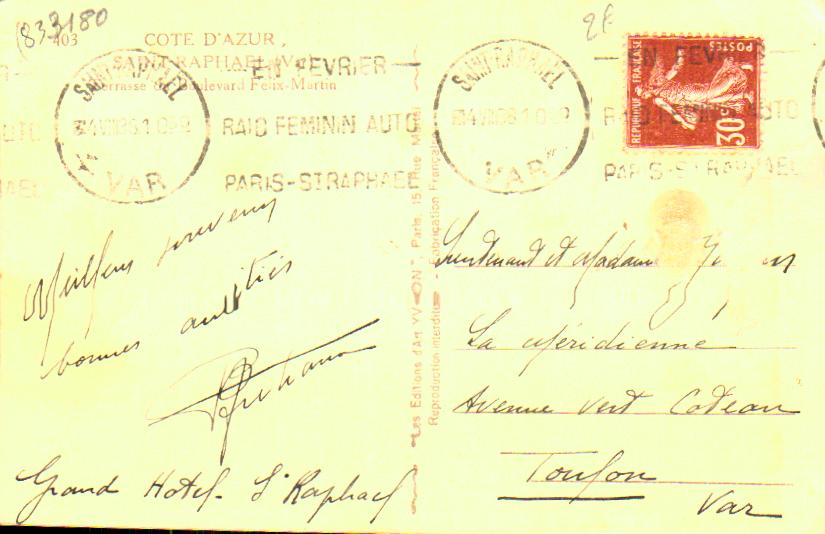 (833180
2f
403 COTE D'AZUR,
SAINT-RAPHAEL (Var)
Terrasse du Boulevard Felix-Martin
SAINT-RAPHAEL
VAR
EN FEVRIER
RAID FEMININ AUTO
PARIS-ST RAPHAEL
SAINT-RAPHAEL
VAR
EN FEVRIER
RAID FEMININ AUTO
PARIS-ST RAPHAEL
AUTO
HAEL
REPUBLIQUE FRANÇAISE
POSTES
30c
Meilleurs souvenirs
bonnes amitiés
Grand Hotel St Raphael
Les Editions d'Art YVON Paris, 15 Rue
Reproduction interdite Fabrication Française
Lieutenant et Madame
La Méridienne
Avenue Vert Coteau
Toulon
Var